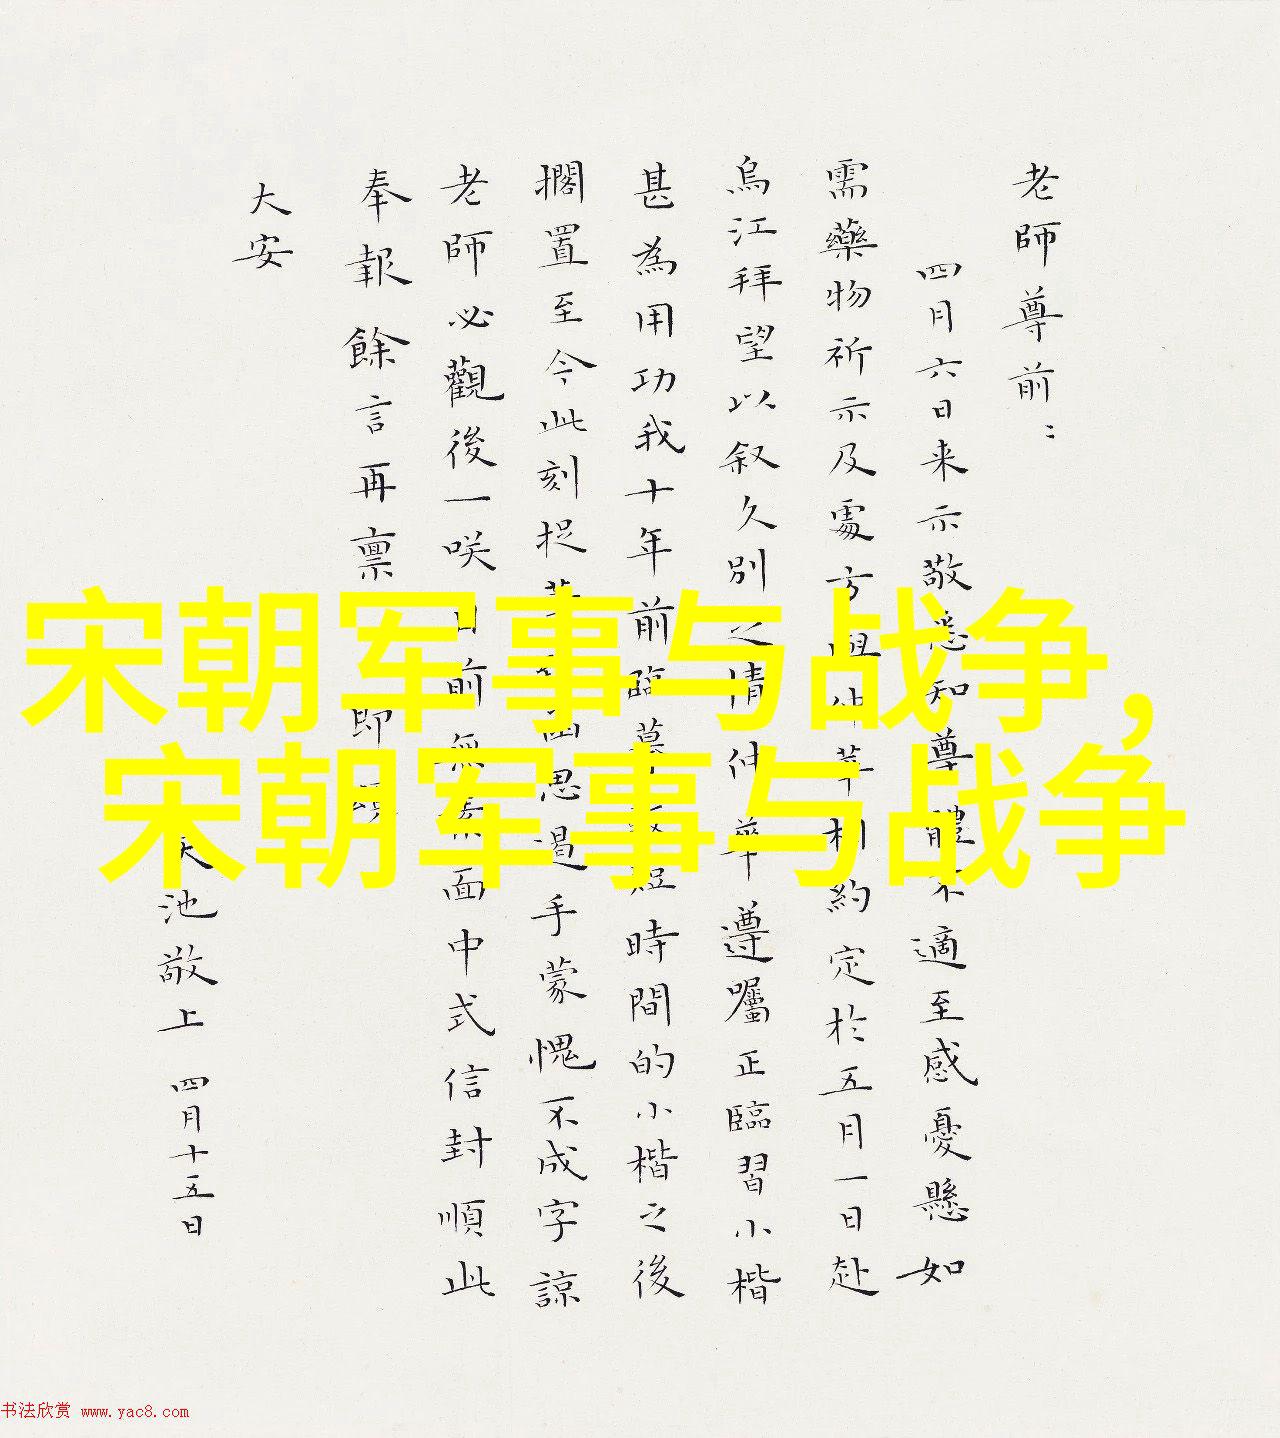 老師尊前：
四月六日来示敬悉知尊體不適至感憂懸如
需藥物祈示及處方 仲苹 約定於五月一日赴
烏江拜望以叙久別之情仲苹遵囑正臨習小楷
甚為用功我十年前臨 時間的小楷之後
擱置至今此刻捉 思過手蒙愧不成字諒
老師必觀後一咲 前無 面中式信封順此
奉報餘言再稟即
大安
天池敬上 四月十五日
宋朝军事与战争，
宋朝军事与战争
书法欣赏 www.yac8.com